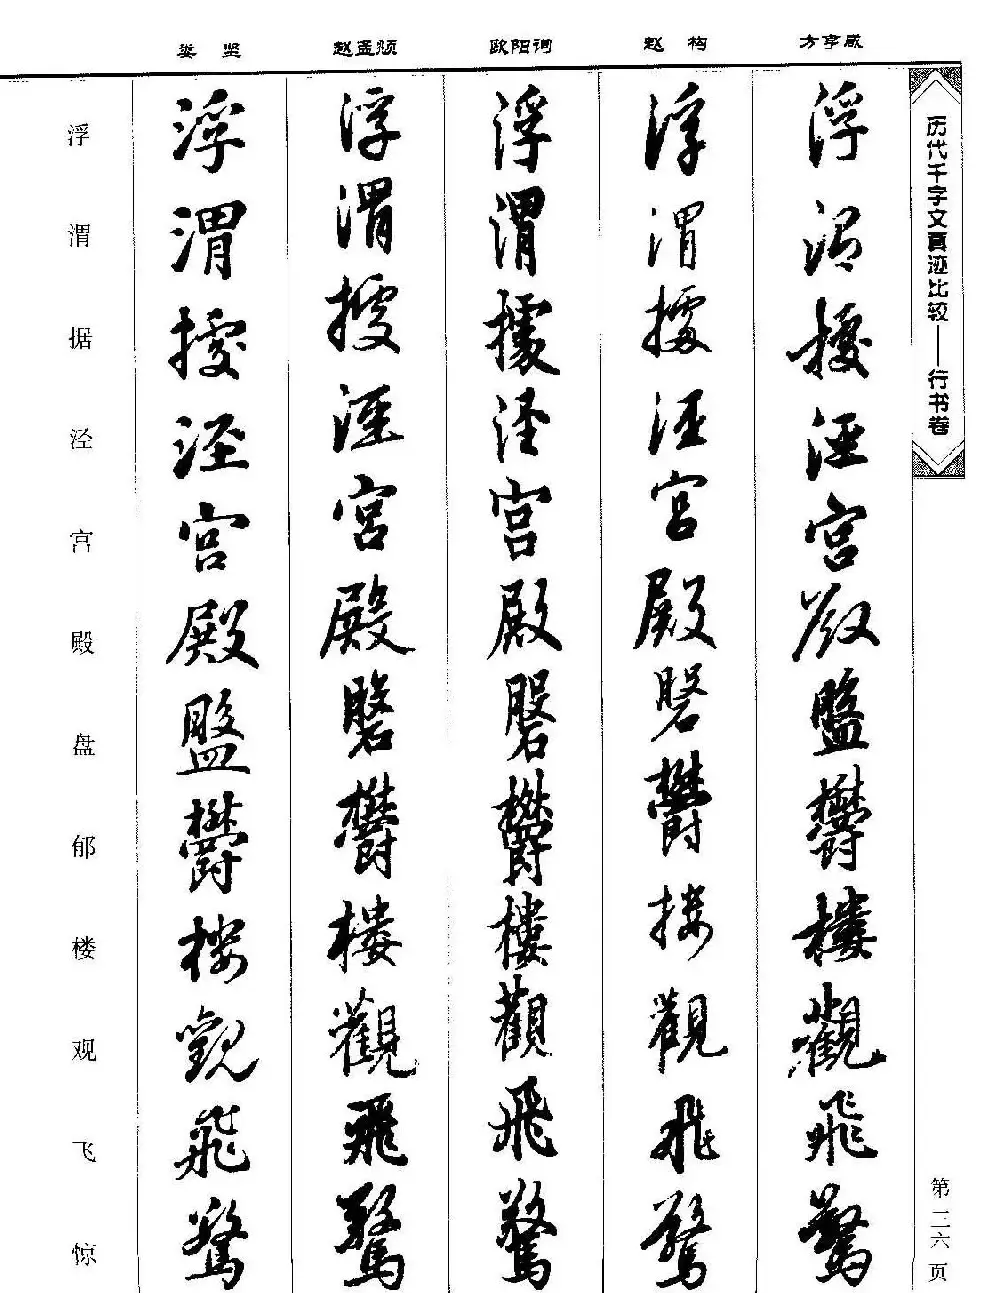 历代千字文真迹比较——行书卷
第二六页
方亨咸
浮渭據涇宮殿盤鬱樓觀飛驚
赵 构
浮渭據涇宮殿磐鬱樓觀飛驚
欧阳询
浮渭據涇宮殿磐鬱樓觀飛驚
赵孟頫
浮渭據涇宮殿磐鬱樓觀飛驚
娄 坚
浮渭據涇宮殿盤鬱樓觀飛驚
浮渭据泾宫殿盘郁楼观飞惊